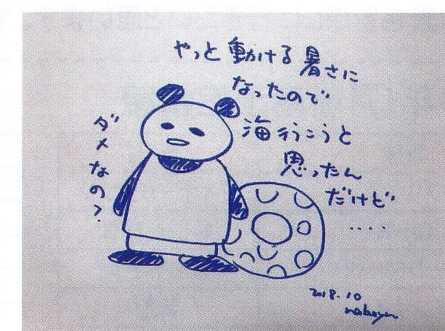 やっと動ける暑さに
なったので
海行こうと
思ったん
だけど
....
ダメなの?
2018.10